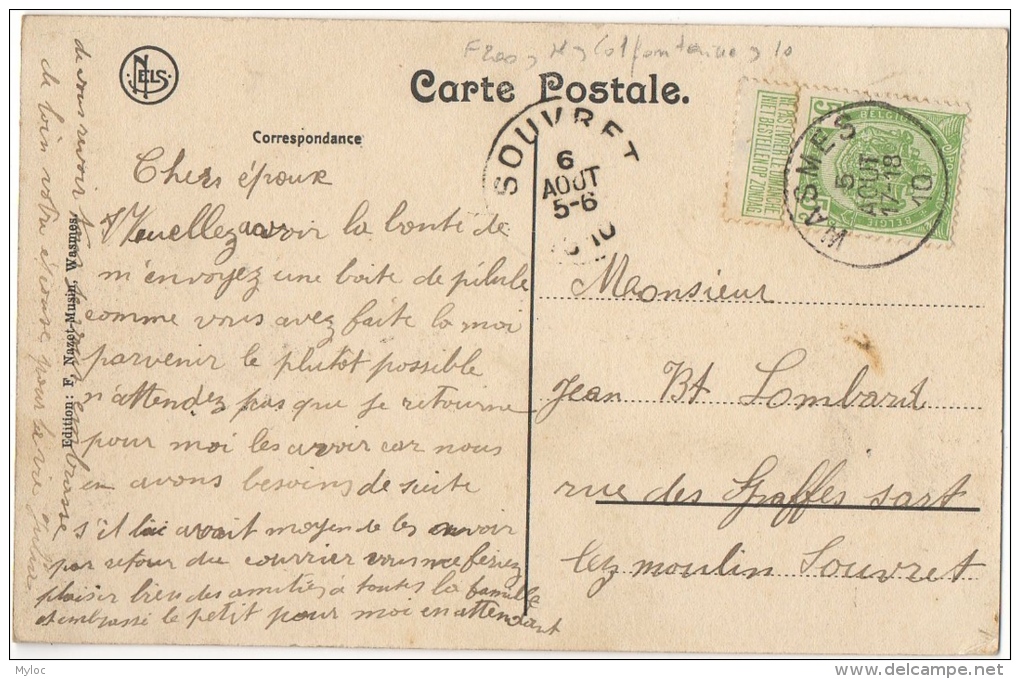 Carte Postale.
NELS
Correspondance
Edition: F. Nazot-Musin, Wasmes.
SOUVRET
6
AOUT
5-6
10
WASMES
5
AOUT
17-18
10
BELGIQUE
5
NE PAS LIVRER LE DIMANCHE
NIET BESTELLEN OP ZONDAG
Chers époux
Veuillez avoir la bonté de
m'envoyez une boite de pilule
comme vous avez faite la moi
parvenir le plutôt possible
n'attendez pas que je retourne
pour moi les avoir car nous
en avons besoins de suite
s'il lui avait moyen de les avoir
par retour du courrier vous me feriez
plaisir bien des amitiés à toutes la famille
et embrassé le petit pour moi en attendant
de vous revoir je vous embrasse
de loin votre épouse pour la vie
Monsieur
Jean Bt Lombard
rue des Graffes sart
lez moulin Souvret
Myloc
delcampe.net